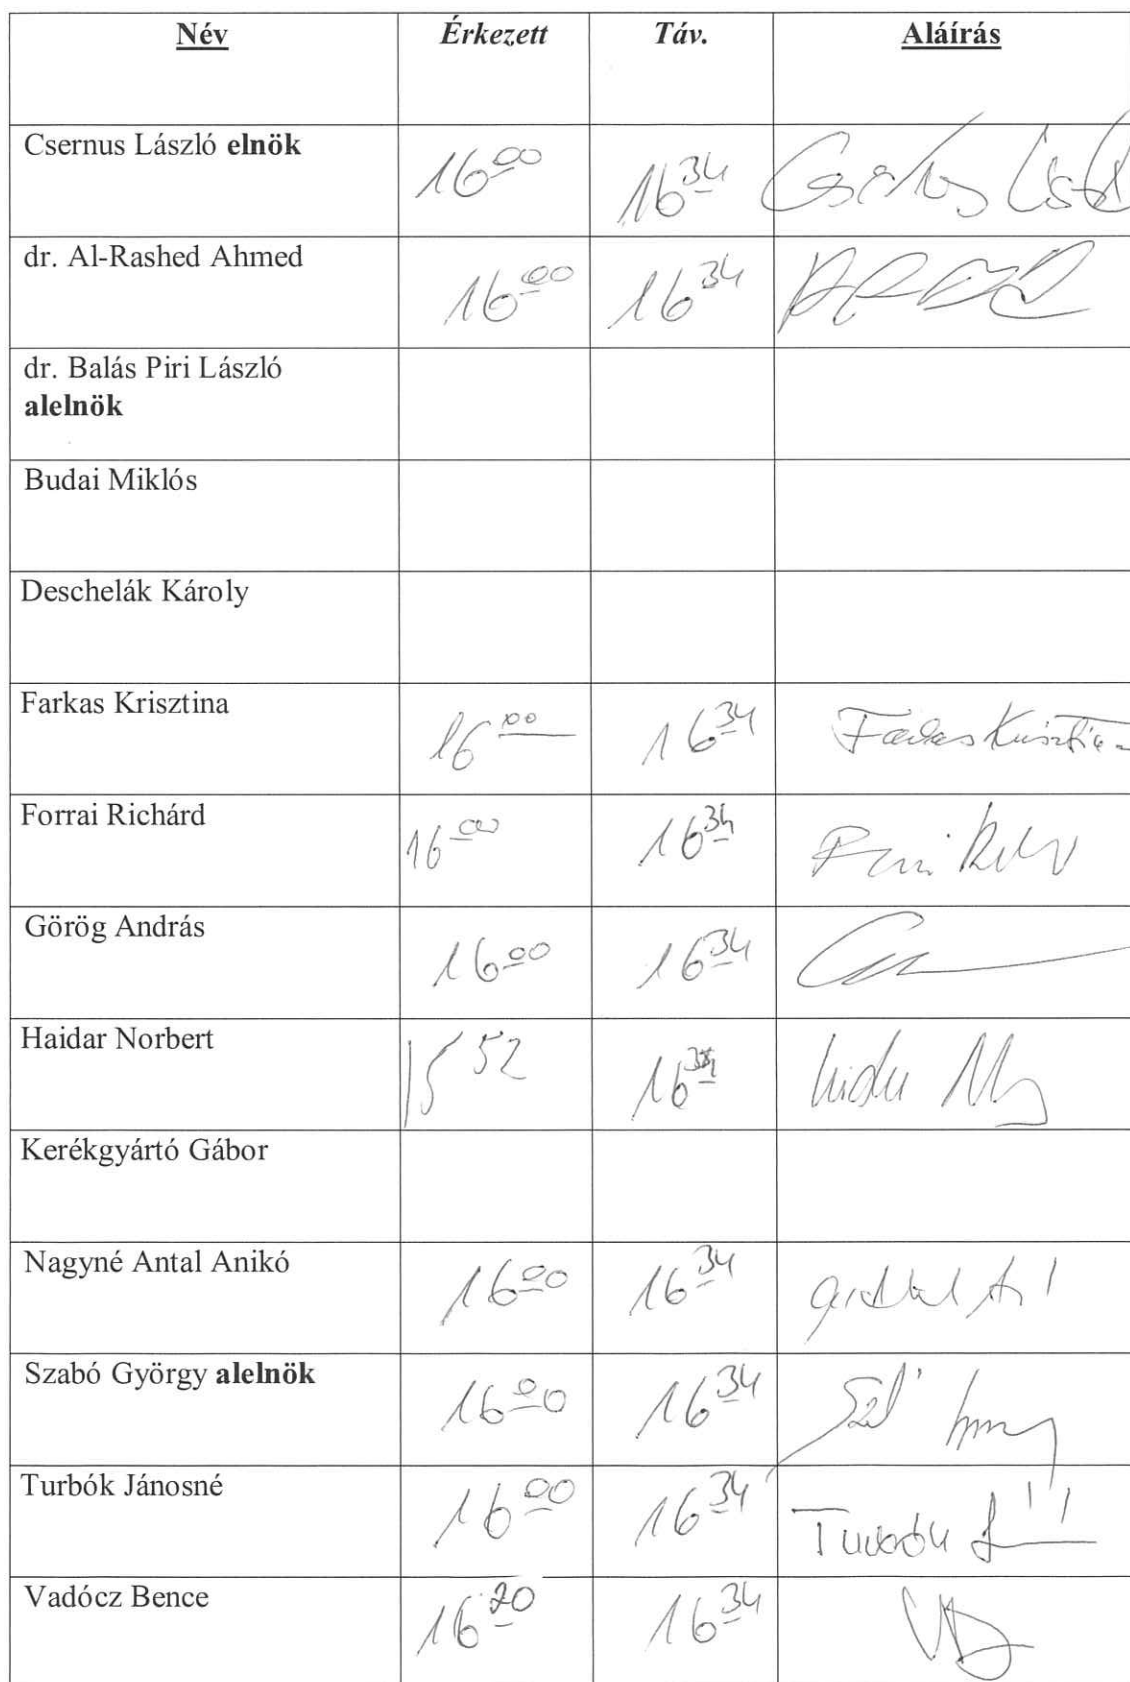 Név Érkezett Táv. Aláírás
Csernus László elnök 16⁰⁰ 16³⁴
dr. Al-Rashed Ahmed 16⁰⁰ 16³⁴
dr. Balás Piri László
alelnök
Budai Miklós
Deschelák Károly
Farkas Krisztina 16⁰⁰ 16³⁴ Farkas Krisztina
Forrai Richárd 16⁰⁰ 16³⁴
Görög András 16⁰⁰ 16³⁴
Haidar Norbert 15⁵² 16³⁴
Kerékgyártó Gábor
Nagyné Antal Anikó 16⁰⁰ 16³⁴
Szabó György alelnök 16⁰⁰ 16³⁴
Turbók Jánosné 16⁰⁰ 16³⁴
Vadócz Bence 16²⁰ 16³⁴